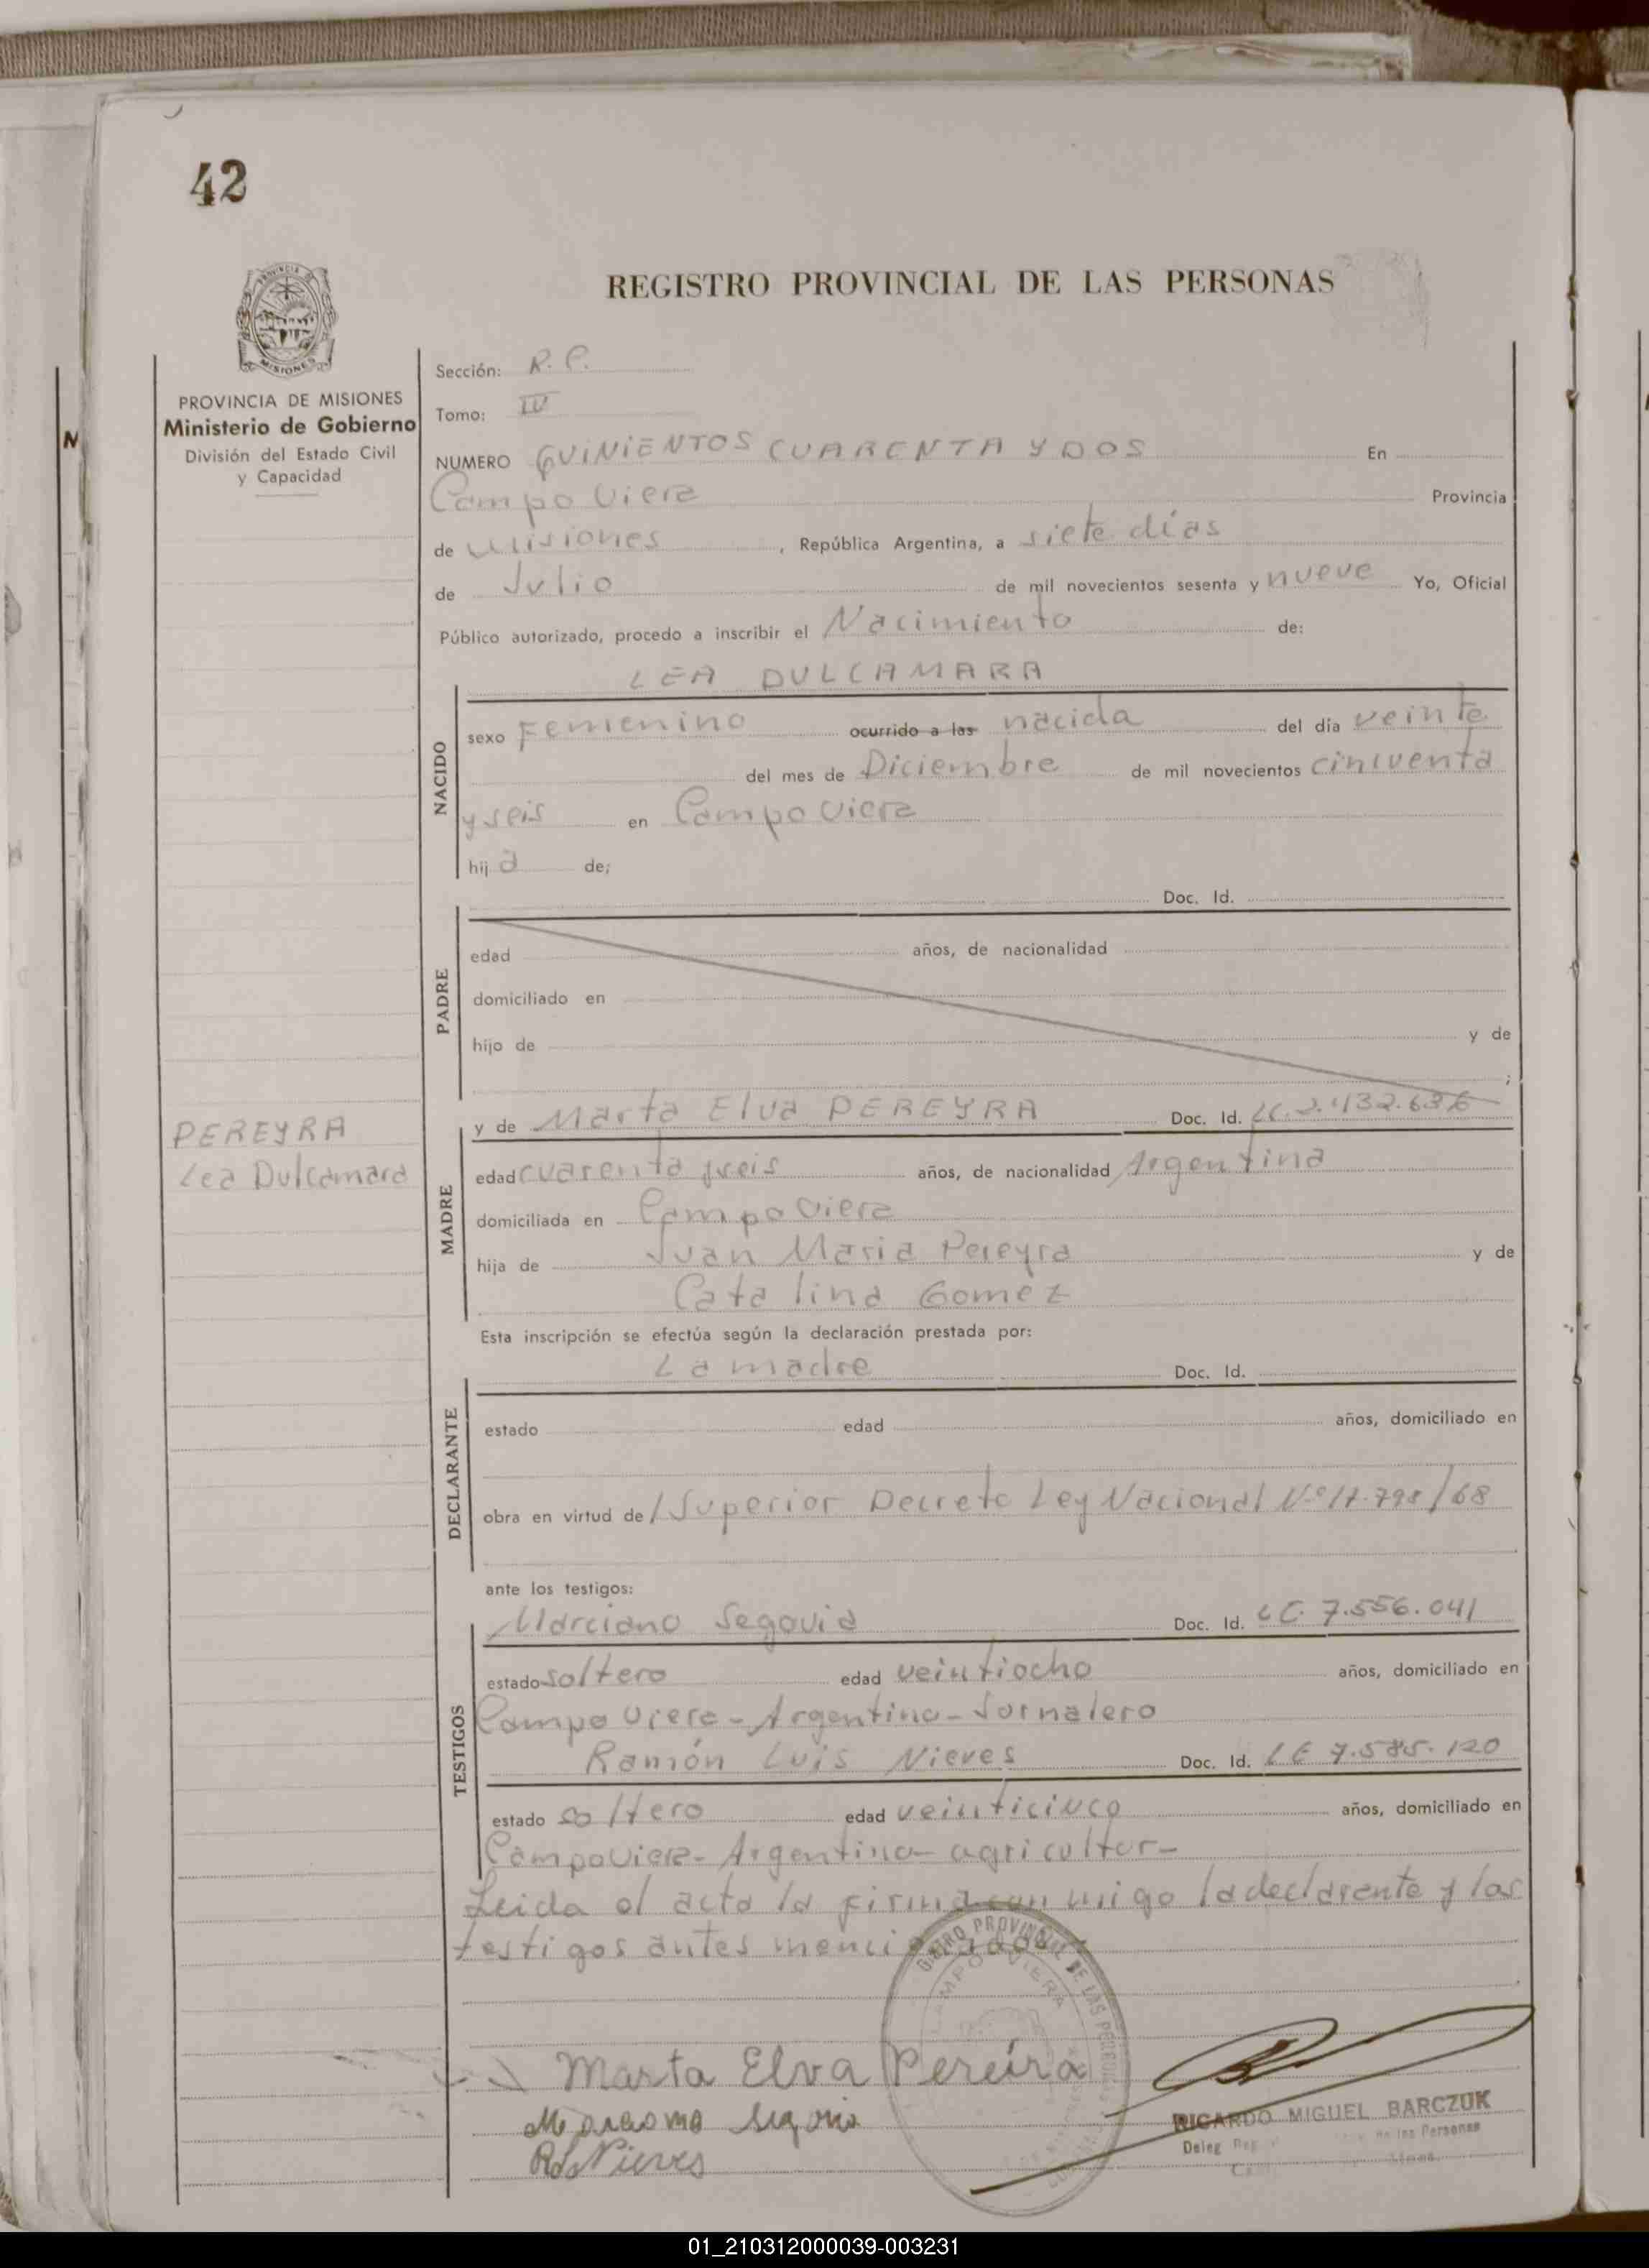 42
REGISTRO PROVINCIAL DE LAS PERSONAS
PROVINCIA DE MISIONES
Ministerio de Gobierno
División del Estado Civil
y Capacidad
Sección: R. P.
Tomo: IV
NUMERO QUINIENTOS CUARENTA Y DOS En
Campo Viera Provincia
de Misiones, República Argentina, a siete días
de Julio de mil novecientos sesenta y nueve Yo, Oficial
Público autorizado, procedo a inscribir el Nacimiento de:
LEA DULCAMARA
NACIDO
sexo Femenino ocurrido a las nacida del día veinte
del mes de Diciembre de mil novecientos cincuenta
y seis en Campo Viera
hija de;
PADRE
Doc. Id.
edad años, de nacionalidad
domiciliado en
hijo de y de
;
PEREYRA
Lea Dulcamara
MADRE
y de Marta Elva PEREYRA Doc. Id. LC.
edad cuarenta y seis años, de nacionalidad Argentina
domiciliada en Campo Viera
hija de Juan Maria Pereyra y de
Catalina Gomez
Esta inscripción se efectúa según la declaración prestada por:
DECLARANTE
La madre Doc. Id.
estado edad años, domiciliado en
obra en virtud de /Superior Decreto Ley Nacional Nº 17.798/68
ante los testigos:
TESTIGOS
Marciano Segovia Doc. Id. 7.556.041
estado soltero edad veintiocho años, domiciliado en
Campo Viera - Argentino - Jornalero
Ramón Luis Nieves Doc. Id. LE 7.585.120
estado soltero edad veinticinco años, domiciliado en
Campo Viera - Argentino - agricultor -
Leida el acta la firma con migo la declarente y los
testigos antes mencionados
CAMPO VIERA
Marta Elva Pereira
Segovia
R L Nieves
RICARDO MIGUEL BARCZUK
01_210312000039-003231